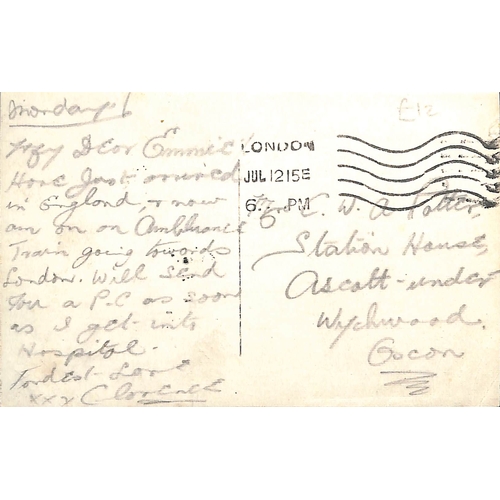 Monday
£12
My Dear Emmie
Have Just arrived
in England, & now
am on an Ambulance
Train going towards
London. Will Send
you a P.C as soon
as I get into
Hospital.
Fondest Love
xxx Clarence
LONDON
JUL 12 15 E
6. PM
C. W. A. Potter
Station House,
Ascott-under
Wychwood.
Oxon